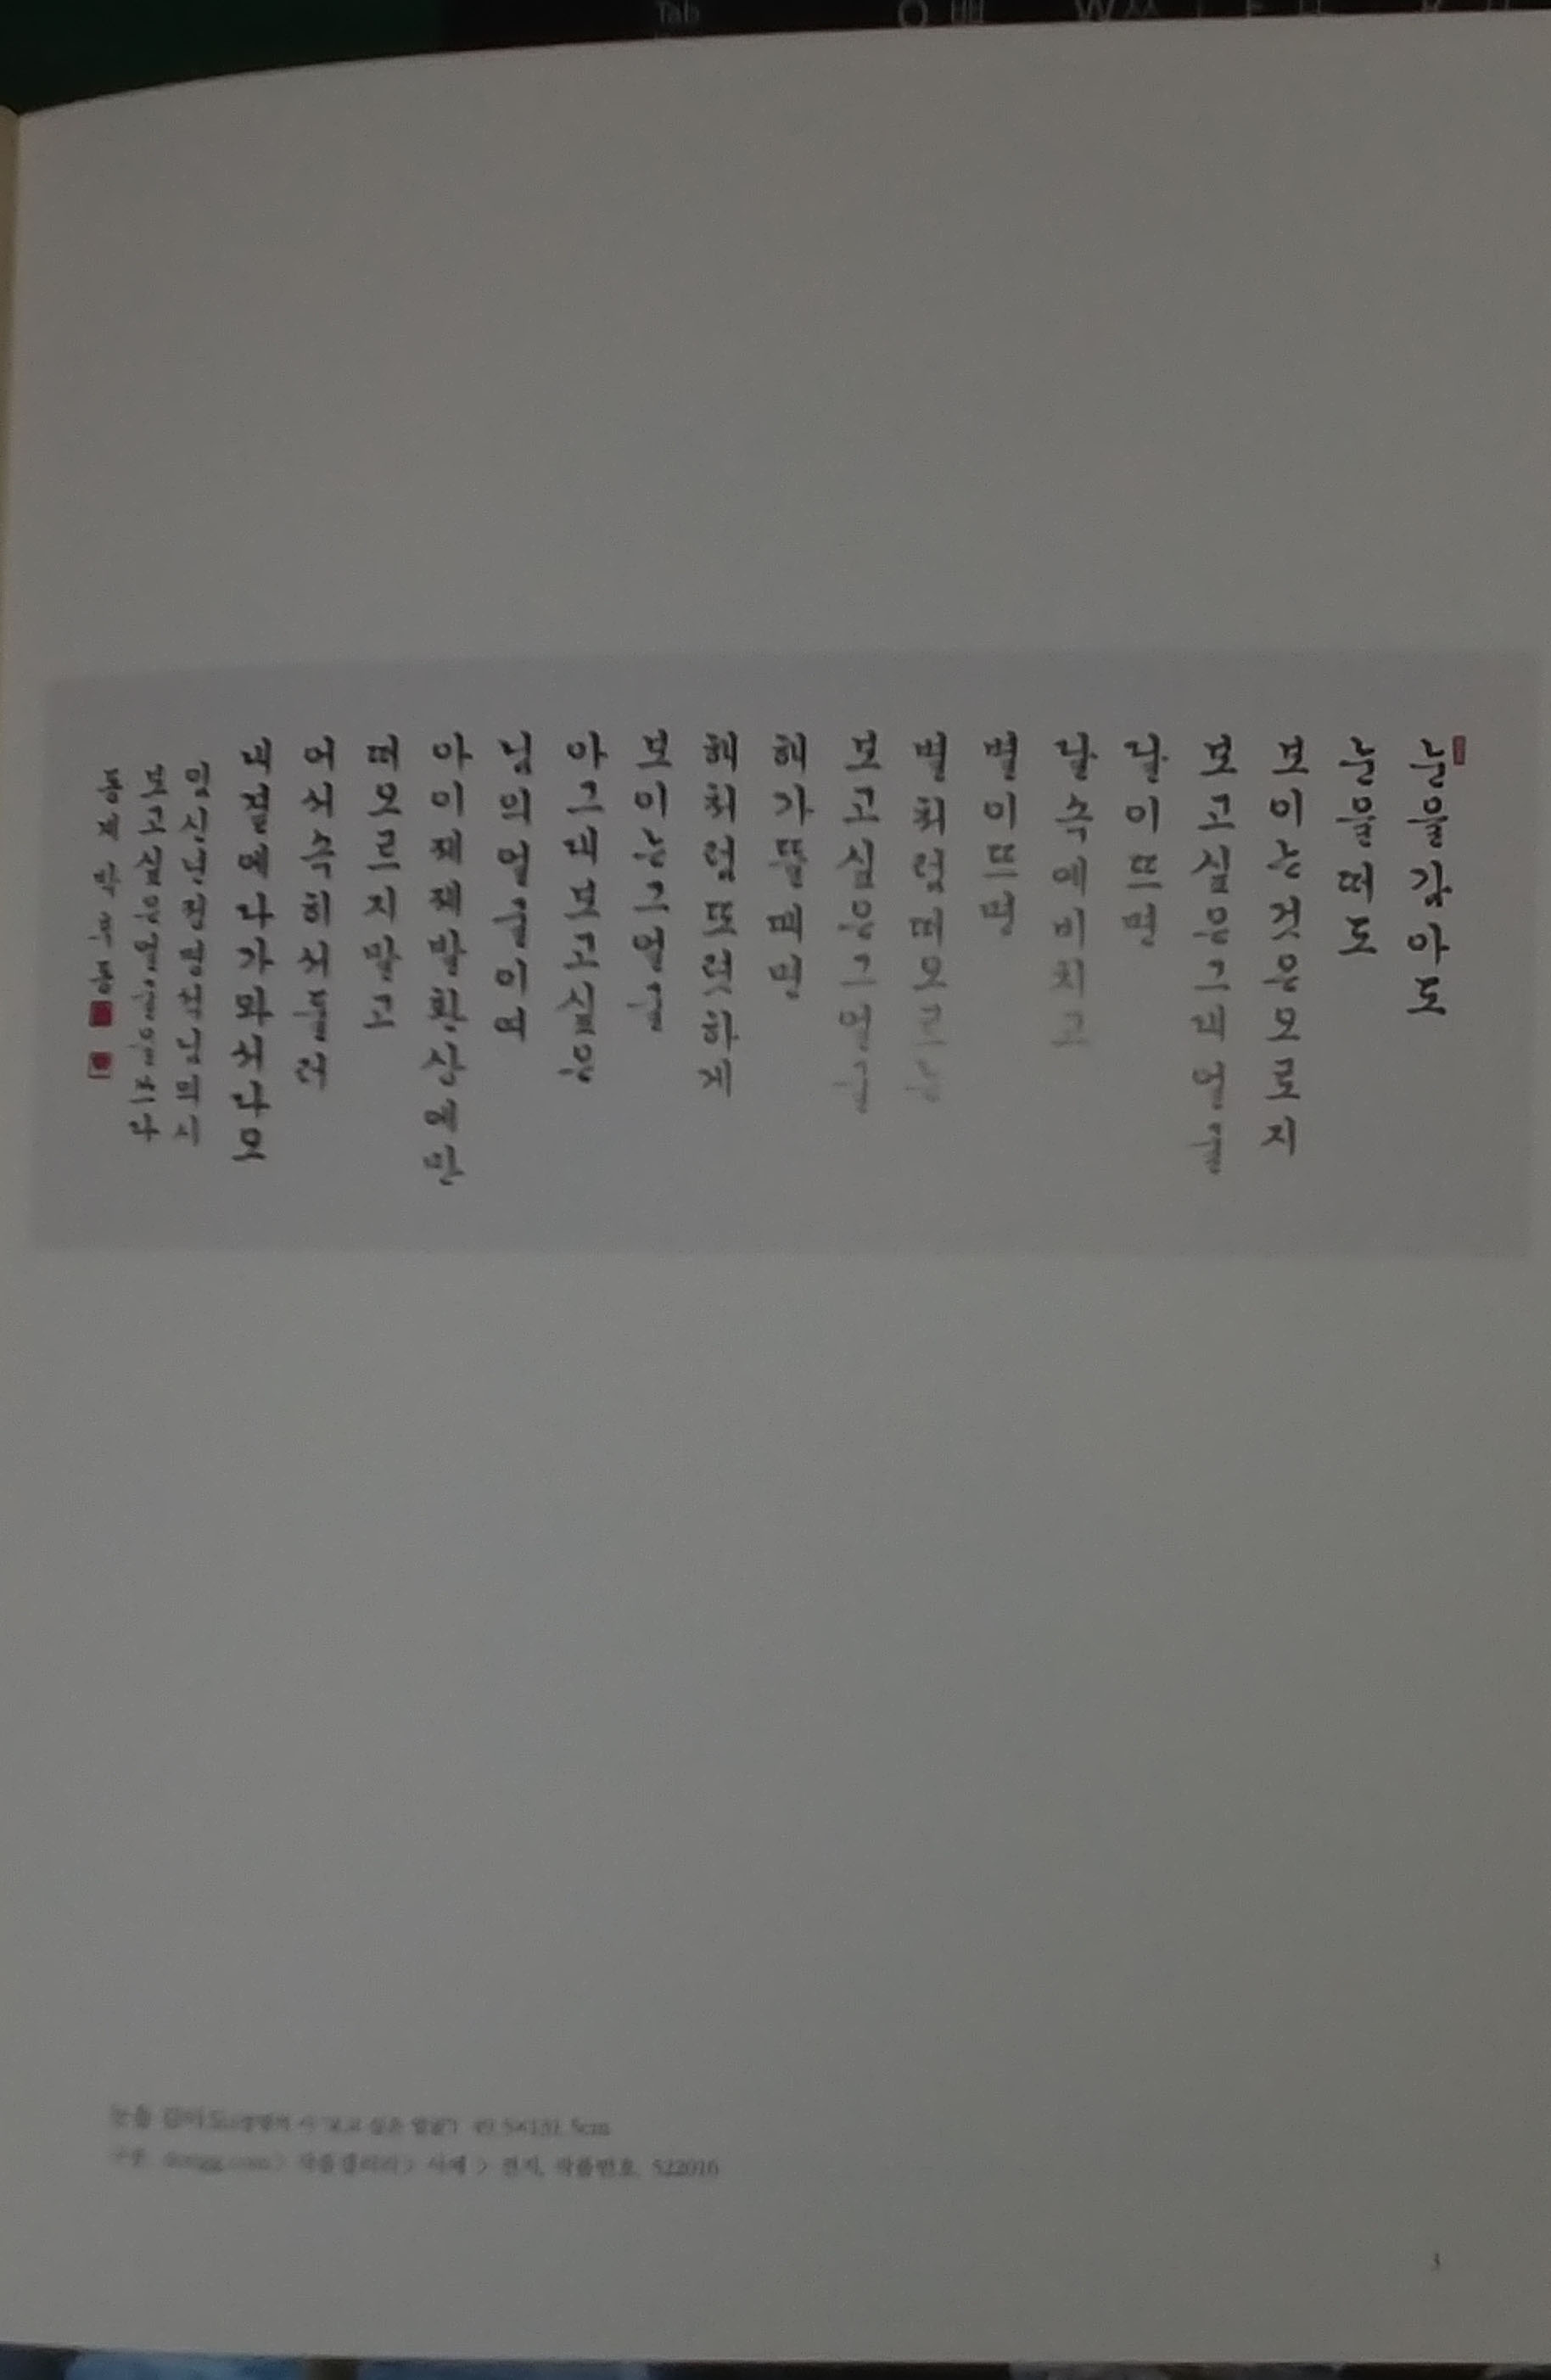 Tab
눈을감아도
눈을떠도
보이는것은오로지
보고싶은그대얼굴
달이뜨면
달속에비치고
별이뜨면
별처럼떠오르는
보고싶은그얼굴
해가뜰때면
해처럼또렷하게
보이는그얼굴
아그대보고싶은
님의얼굴이여
아이제제발환상에만
떠오르지말고
어서속히서둘러
내곁에나가와서나오
임신년
보고싶은얼굴을쓰다
49.5×131.5cm
작품번호. 522016
3